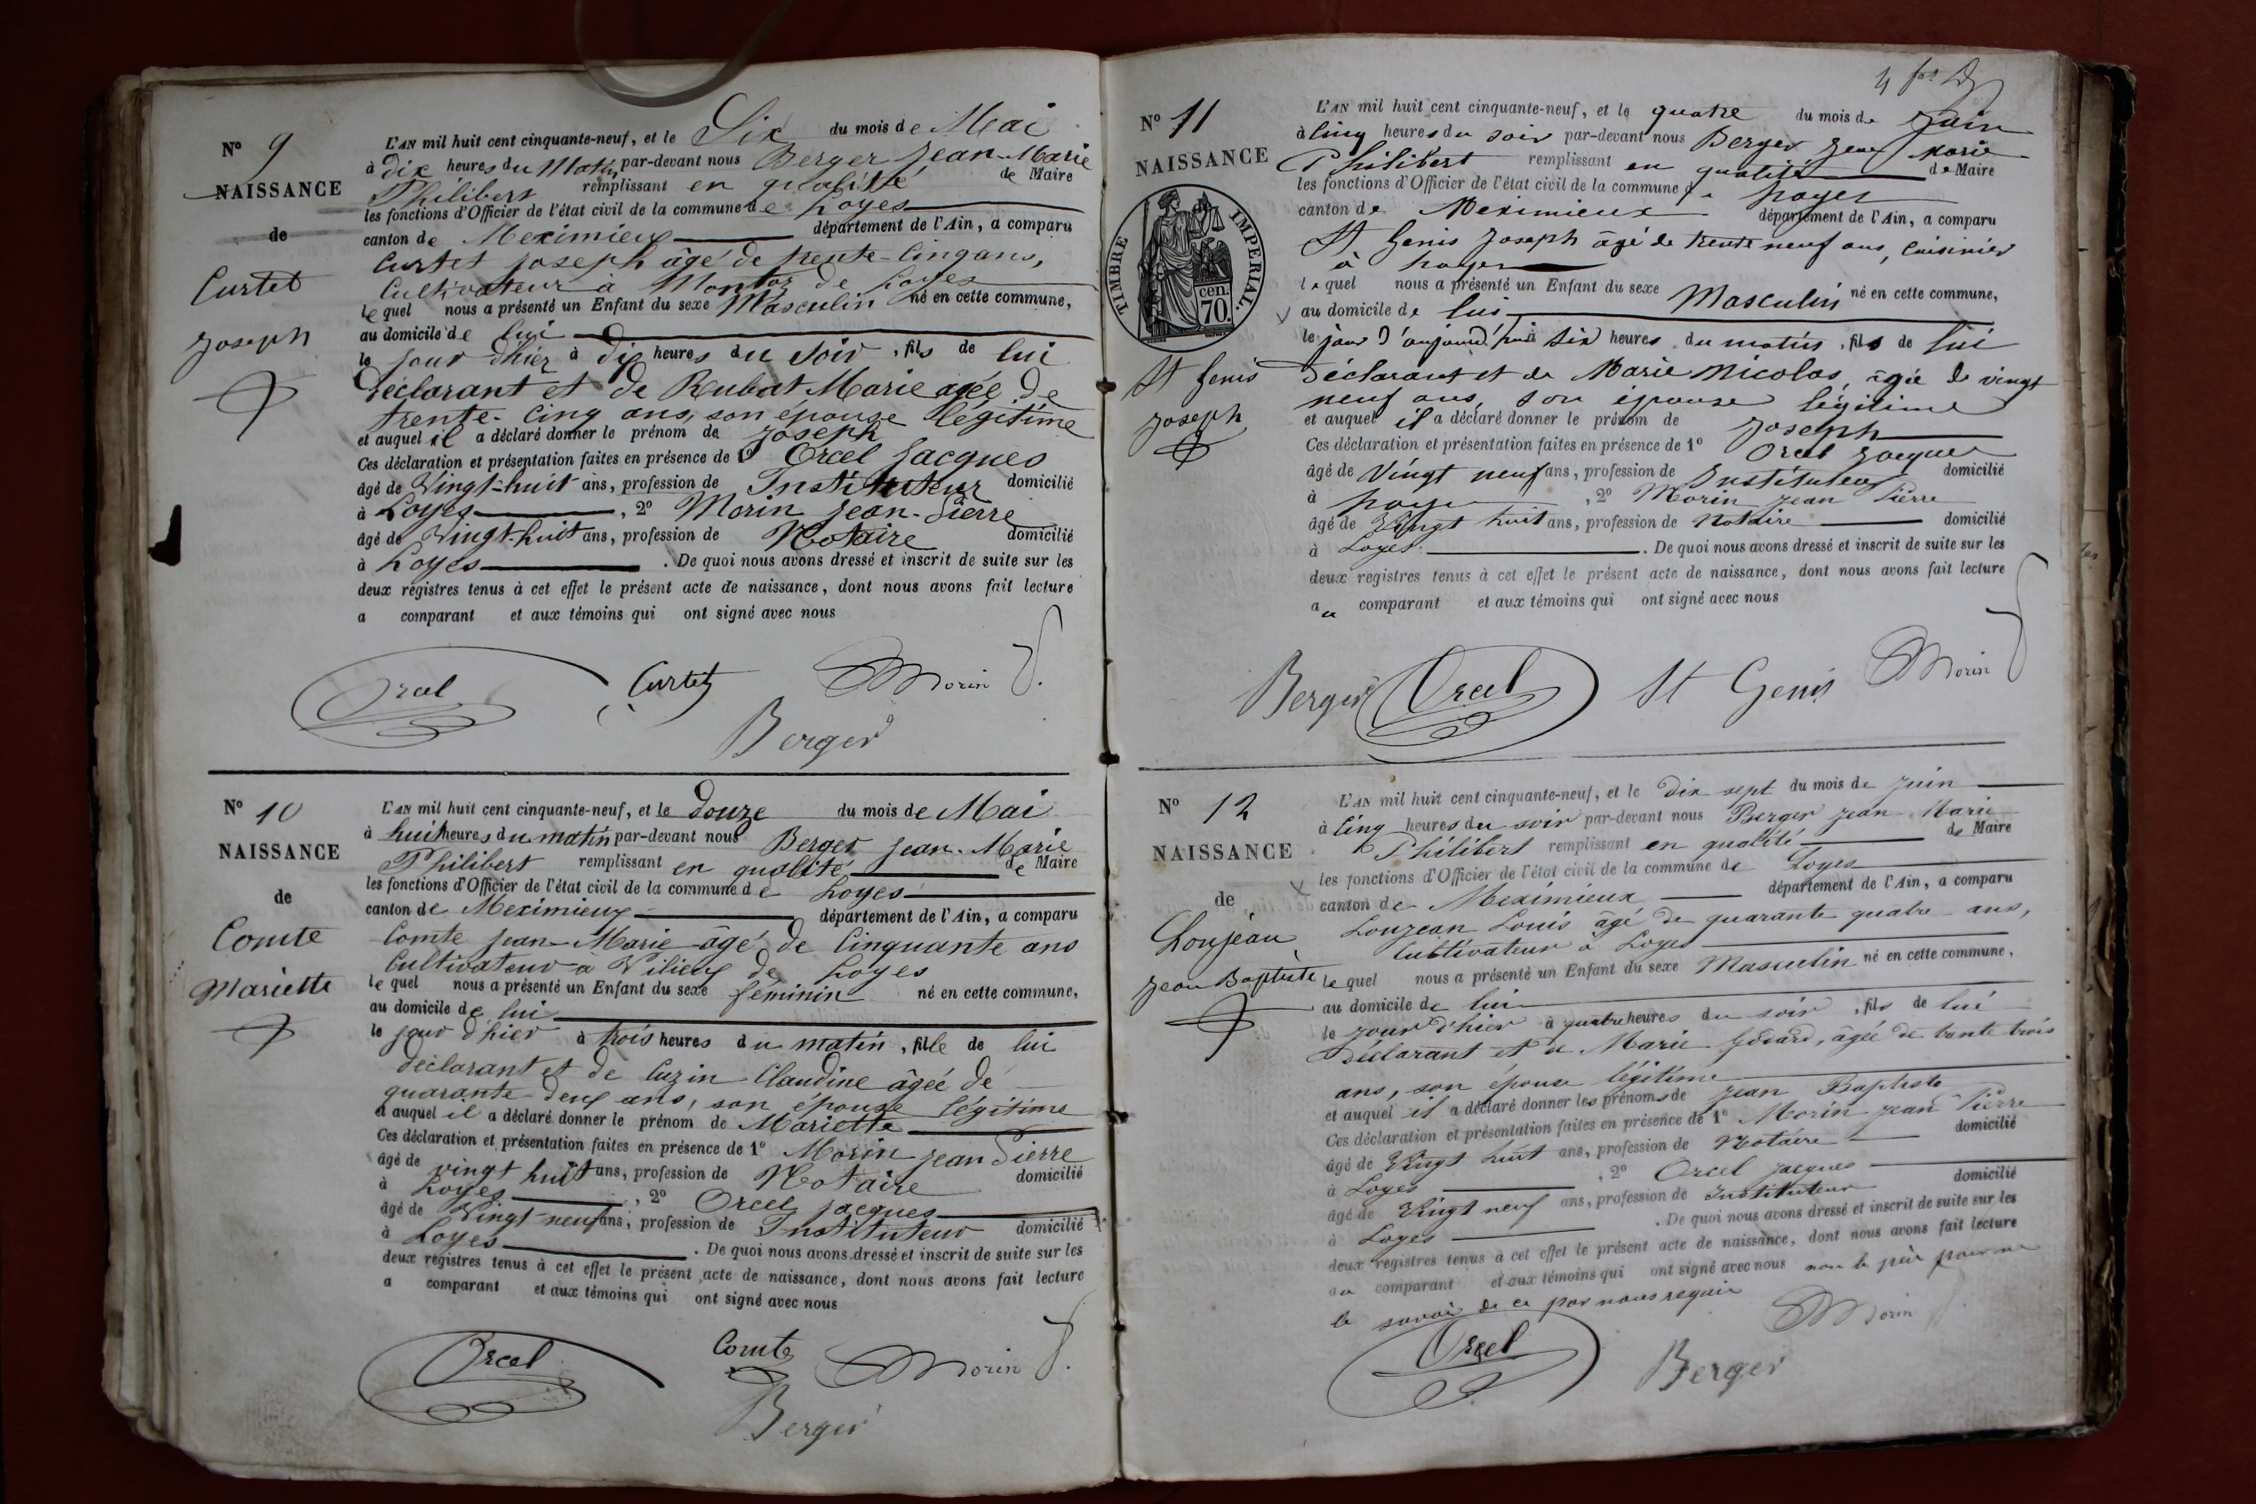 Nº 9
NAISSANCE
de
Curtet
Joseph
L'AN mil huit cent cinquante-neuf, et le Six du mois de Mai
à dix heures du Matin par-devant nous Berger Jean-Marie
Philibert remplissant en qualité de Maire
les fonctions d'Officier de l'état civil de la commune de Loyes
canton de Meximieux département de l'Ain, a comparu
Curtet Joseph âgé de trente-cinq ans,
Cultivateur à Montoz de Loyes
lequel nous a présenté un Enfant du sexe Masculin né en cette commune,
au domicile de lui
le jour d'hier à dix heures du soir, fils de lui
déclarant et de Rubat Marie agée de
trente-cinq ans, son épouse légitime
et auquel il a déclaré donner le prénom de Joseph
Ces déclaration et présentation faites en présence de 1º Orcel Jacques
âgé de Vingt-huit ans, profession de Instituteur domicilié
à Loyes, 2º Morin Jean-Pierre
âgé de Vingt-huit ans, profession de Notaire domicilié
à Loyes. De quoi nous avons dressé et inscrit de suite sur les
deux registres tenus à cet effet le présent acte de naissance, dont nous avons fait lecture
a comparant et aux témoins qui ont signé avec nous
Orcel Curtet Morin
Berger
Nº 10
NAISSANCE
de
Comte
Mariette
L'AN mil huit cent cinquante-neuf, et le douze du mois de Mai
à huit heures du matin par-devant nous Berger Jean-Marie
Philibert remplissant en qualité de Maire
les fonctions d'Officier de l'état civil de la commune de Loyes
canton de Meximieux département de l'Ain, a comparu
Comte Jean-Marie âgé de Cinquante ans
Cultivateur à Vilieux de Loyes
lequel nous a présenté un Enfant du sexe féminin né en cette commune,
au domicile de lui
le jour d'hier à trois heures du matin, fille de lui
déclarant et de Cuzin Claudine âgée de
quarante deux ans, son épouse légitime
et auquel il a déclaré donner le prénom de Mariette
Ces déclaration et présentation faites en présence de 1º Morin Jean Pierre
âgé de vingt huit ans, profession de Notaire domicilié
à Loyes, 2º Orcel Jacques
âgé de Vingt-neuf ans, profession de Instituteur domicilié
à Loyes. De quoi nous avons dressé et inscrit de suite sur les
deux registres tenus à cet effet le présent acte de naissance, dont nous avons fait lecture
a comparant et aux témoins qui ont signé avec nous
Orcel Comte Morin
Berger
Nº 11
NAISSANCE
TIMBRE IMPÉRIAL.
70 cen.
St Genis
Joseph
L'AN mil huit cent cinquante-neuf, et le quatre du mois de Juin
à cinq heures du soir par-devant nous Berger Jean Marie
Philibert remplissant en qualité de Maire
les fonctions d'Officier de l'état civil de la commune de Loyes
canton de Meximieux département de l'Ain, a comparu
St Genis Joseph âgé de trente neuf ans, Cuisinier
à Loyes
lequel nous a présenté un Enfant du sexe Masculin né en cette commune,
au domicile de lui
le jour d'aujourd'hui à six heures du matin, fils de lui
déclarant et de Marie Nicolas, âgée de vingt
neuf ans, son épouse légitime
et auquel il a déclaré donner le prénom de Joseph
Ces déclaration et présentation faites en présence de 1º Orcel Jacques
âgé de Vingt neuf ans, profession de Instituteur domicilié
à Loyes, 2º Morin Jean Pierre
âgé de Vingt huit ans, profession de Notaire domicilié
à Loyes. De quoi nous avons dressé et inscrit de suite sur les
deux registres tenus à cet effet le présent acte de naissance, dont nous avons fait lecture
au comparant et aux témoins qui ont signé avec nous
Berger Orcel St Genis Morin
Nº 12
NAISSANCE
de
Loujean
Jean Baptiste
L'AN mil huit cent cinquante-neuf, et le dix sept du mois de Juin
à cinq heures du soir par-devant nous Berger Jean-Marie
Philibert remplissant en qualité de Maire
les fonctions d'Officier de l'état civil de la commune de Loyes
canton de Meximieux département de l'Ain, a comparu
Loujean Louis âgé de quarante quatre ans,
Cultivateur à Loyes
lequel nous a présenté un Enfant du sexe Masculin né en cette commune,
au domicile de lui
le jour d'hier à quatre heures du soir, fils de lui
déclarant et de Marie Godard, âgée de trente trois
ans, son épouse légitime
et auquel il a déclaré donner les prénoms de Jean Baptiste
Ces déclaration et présentation faites en présence de 1º Morin Jean Pierre
âgé de Vingt huit ans, profession de Notaire domicilié
à Loyes, 2º Orcel Jacques
âgé de Vingt neuf ans, profession de Instituteur domicilié
à Loyes. De quoi nous avons dressé et inscrit de suite sur les
deux registres tenus à cet effet le présent acte de naissance, dont nous avons fait lecture
au comparant et aux témoins qui ont signé avec nous non le père pour ne
le savoir de ce par nous requis
Orcel Morin
Berger